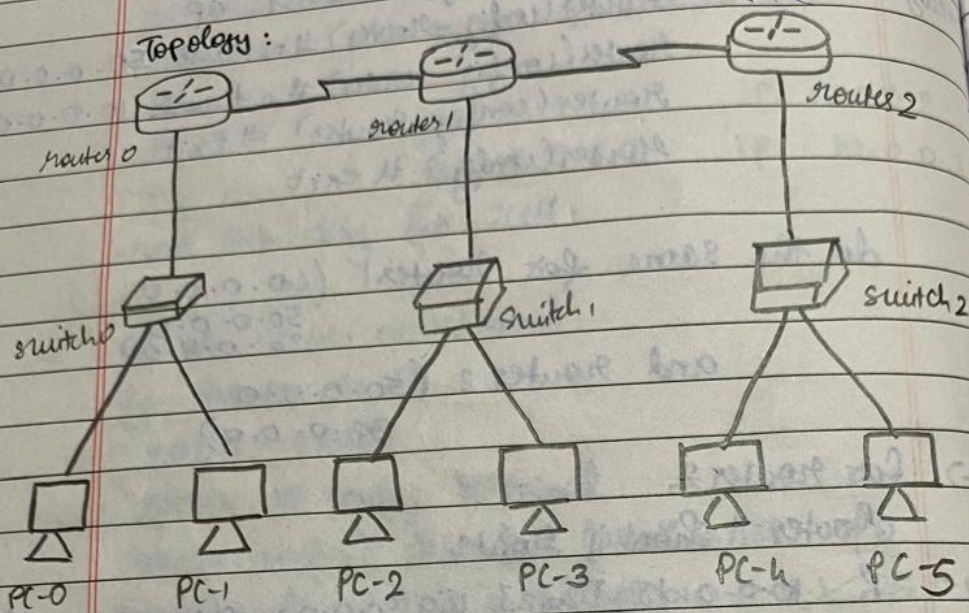 Topology:
router 0
router 1
router 2
switch 0
switch 1
switch 2
PC-0
PC-1
PC-2
PC-3
PC-4
PC-5